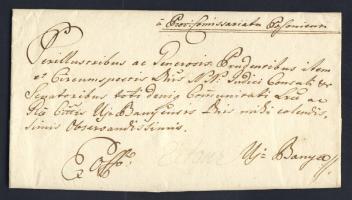 à Provisomissariatu Posoniensi
Perillustribus ac Generosis, Prudentibus item
et Circumspectis Dnis N.N. Judici Consuli &
Senatoribus toti denique Comunitati Lrae ac
Rae Cittis Uj Banyensis Dnis mihi colendis-
simis Observandissimis
Ex Offo. Uj Banyae